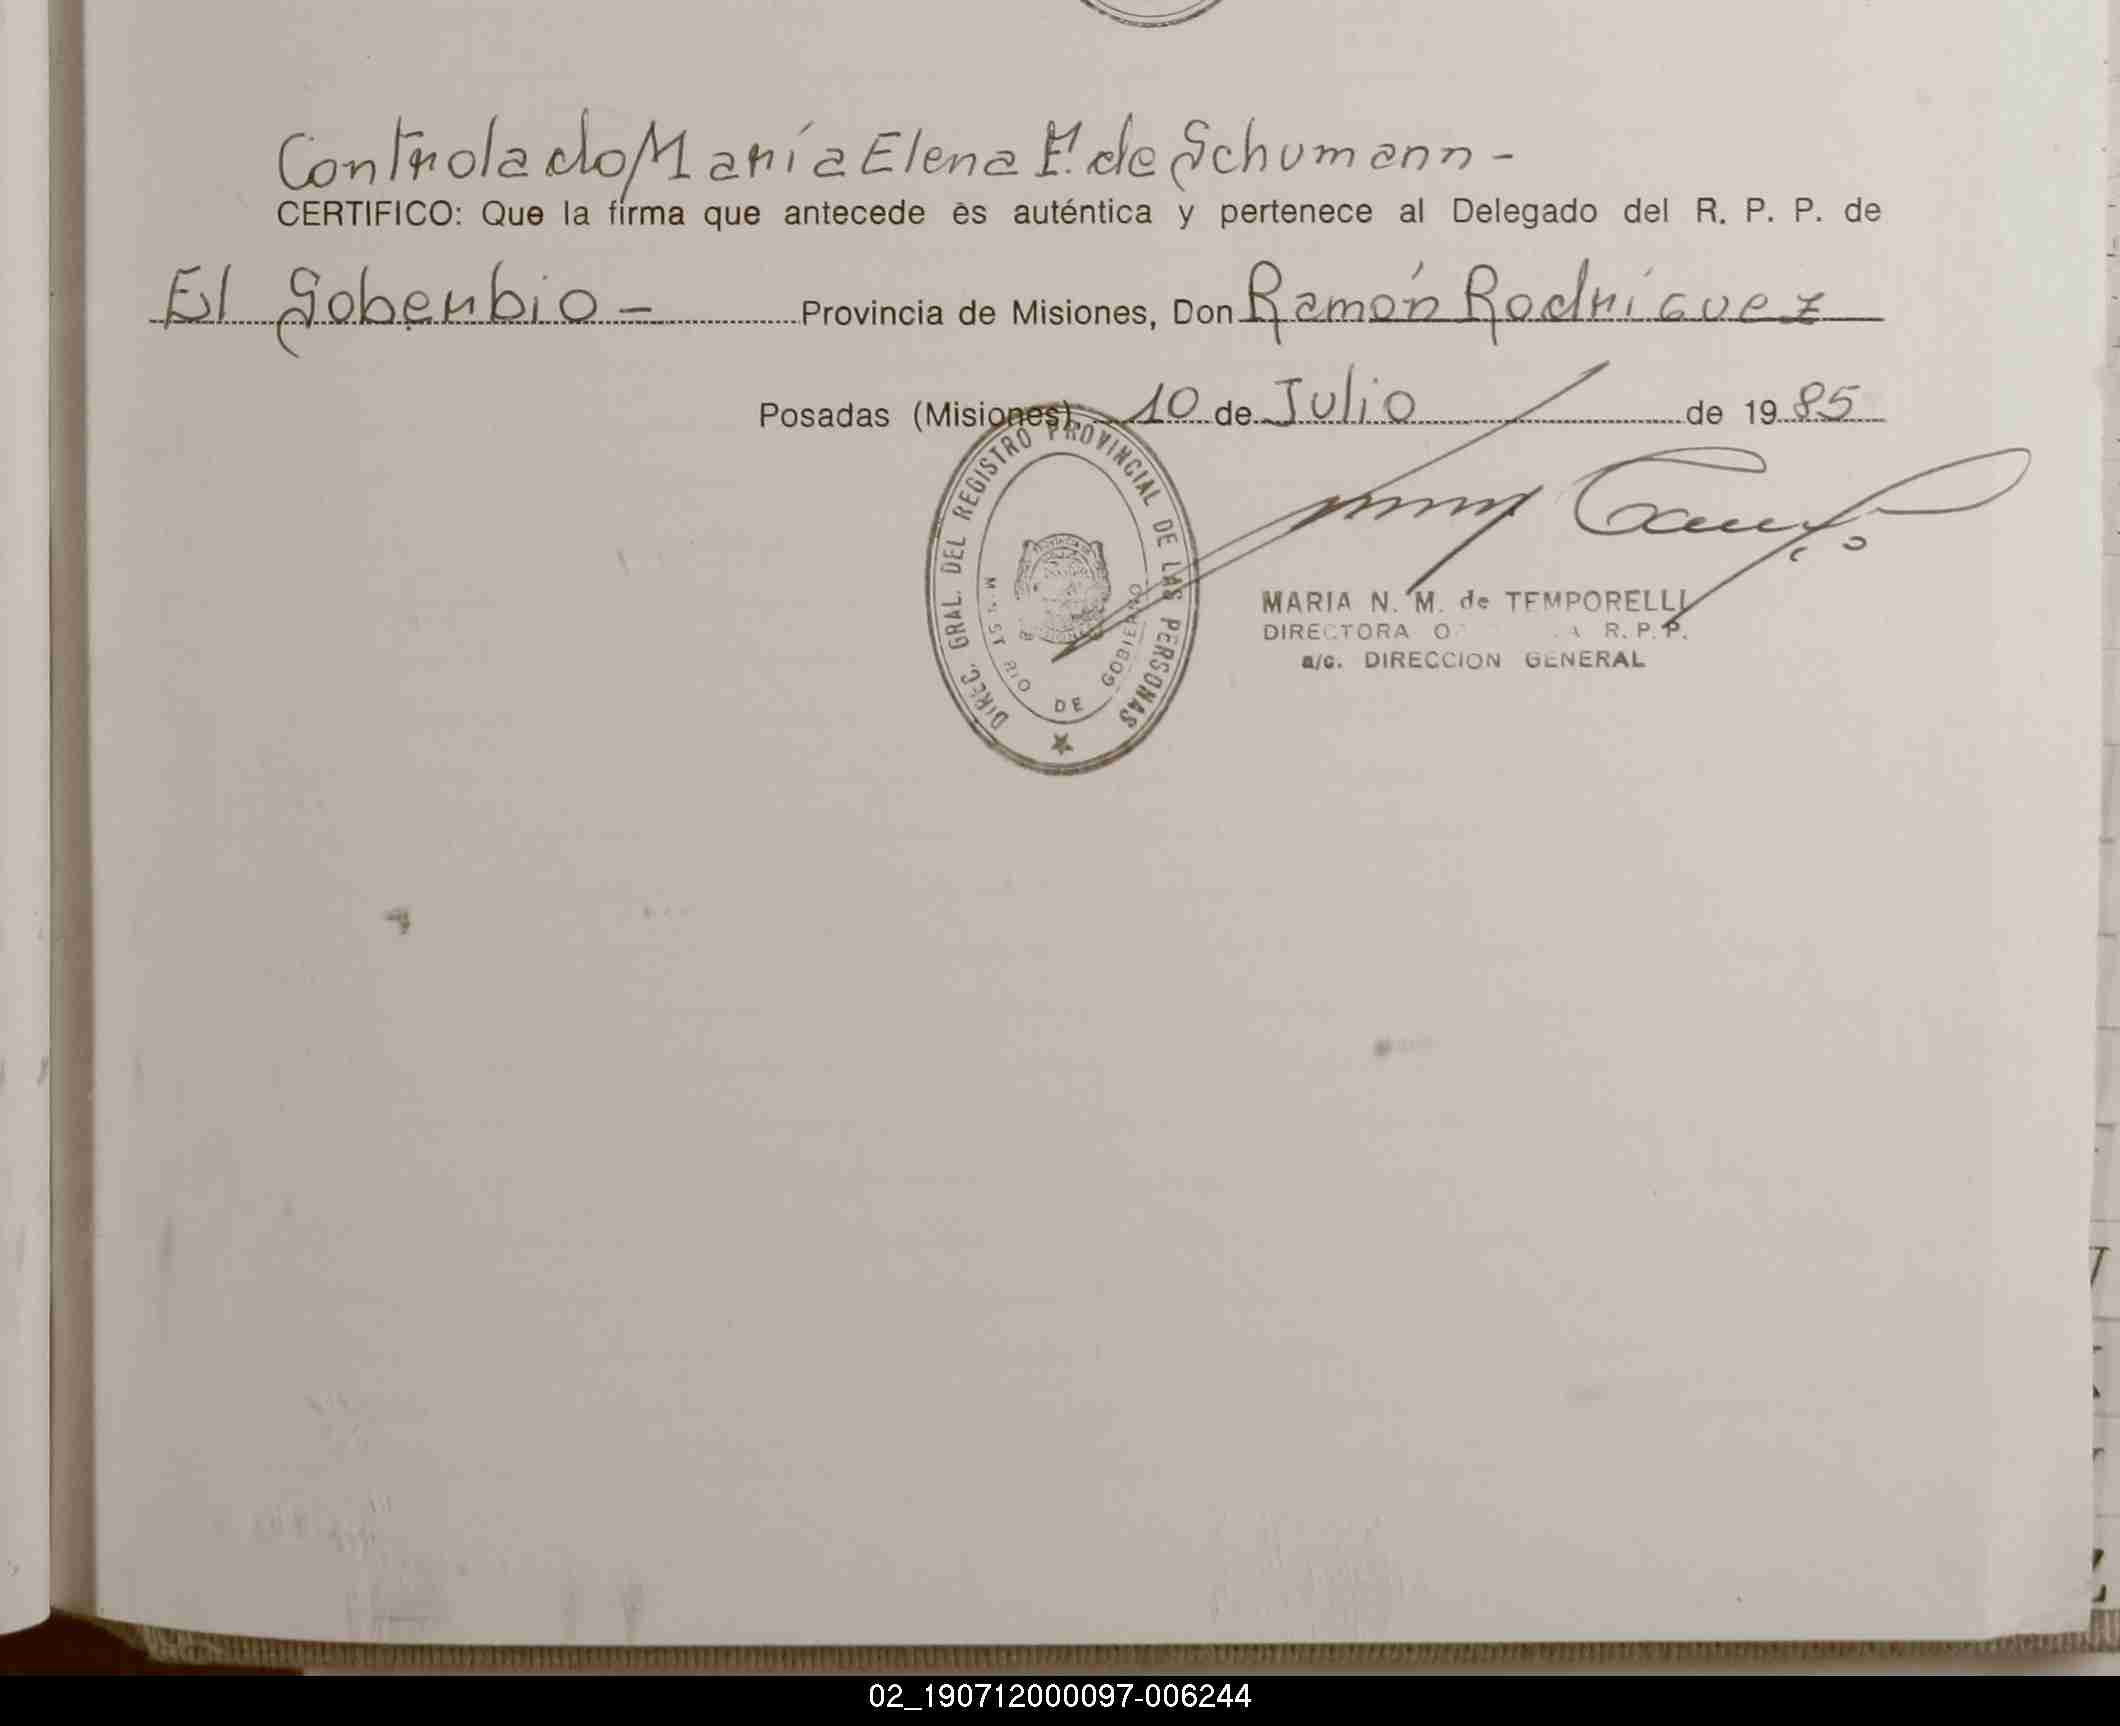 Controlado María Elena F. de Schumann -
CERTIFICO: Que la firma que antecede es auténtica y pertenece al Delegado del R. P. P. de
El Soberbio - Provincia de Misiones, Don Ramón Rodríguez
Posadas (Misiones) 10 de Julio de 1985
DIREC. GRAL. DEL REGISTRO PROVINCIAL DE LAS PERSONAS
PROVINCIA DE
MISIONES
DE GOBIERNO
MARIA N. M. de TEMPORELLI
DIRECTORA R. P. P.
a/c. DIRECCION GENERAL
02_190712000097-006244